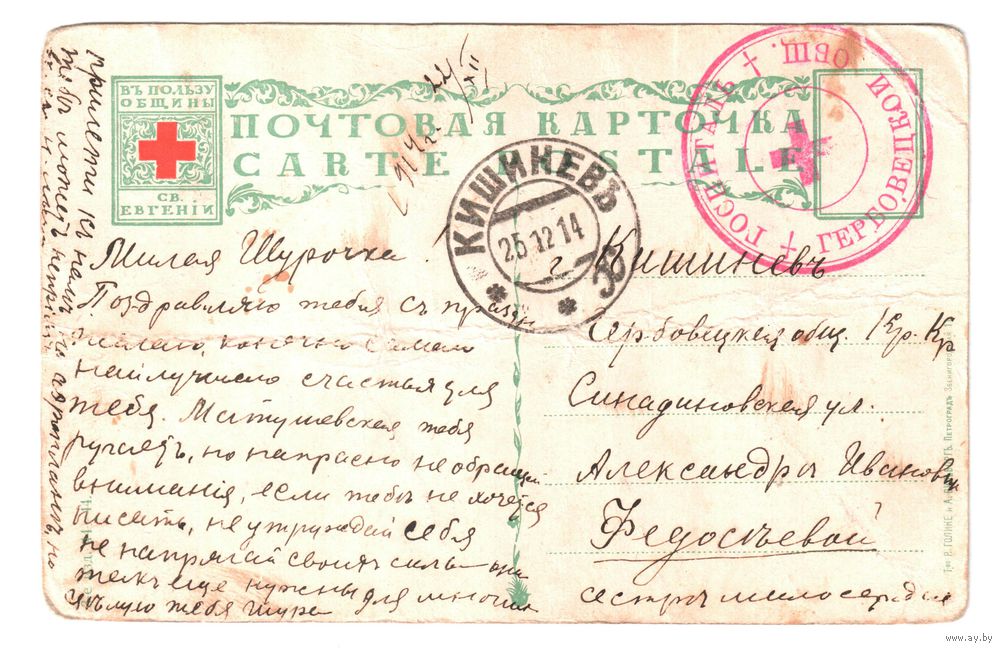 ВЪ ПОЛЬЗУ
ОБЩИНЫ
СВ.
ЕВГЕНІИ
ПОЧТОВАЯ КАРТОЧКА
CARTE POSTALE
КИШИНЕВЪ
25.12.14
ГОСПИТАЛЬ
ГЕРБОВЕЦКОЙ ОБЩ.
Милая Шурочка!
Поздравляю тебя съ праздн
желаю, конечно самаго
наилучшаго счастья для
тебя. Матушевская тебя
ругаетъ, но напрасно не обращай
вниманія, если тебѣ не хочется
писать, не утруждай себя
не напрягай своихъ силъ они
тебѣ еще нужны для многихъ
цѣлую тебя Шура
прилети къ намъ на аэропланѣ, но
тебѣ может
г. Кишиневъ
Гербовецкая общ. Кр. Кр
Синадиновская ул.
Александры Ивановн
Федосьевой
сестры милосердия
www.ay.by